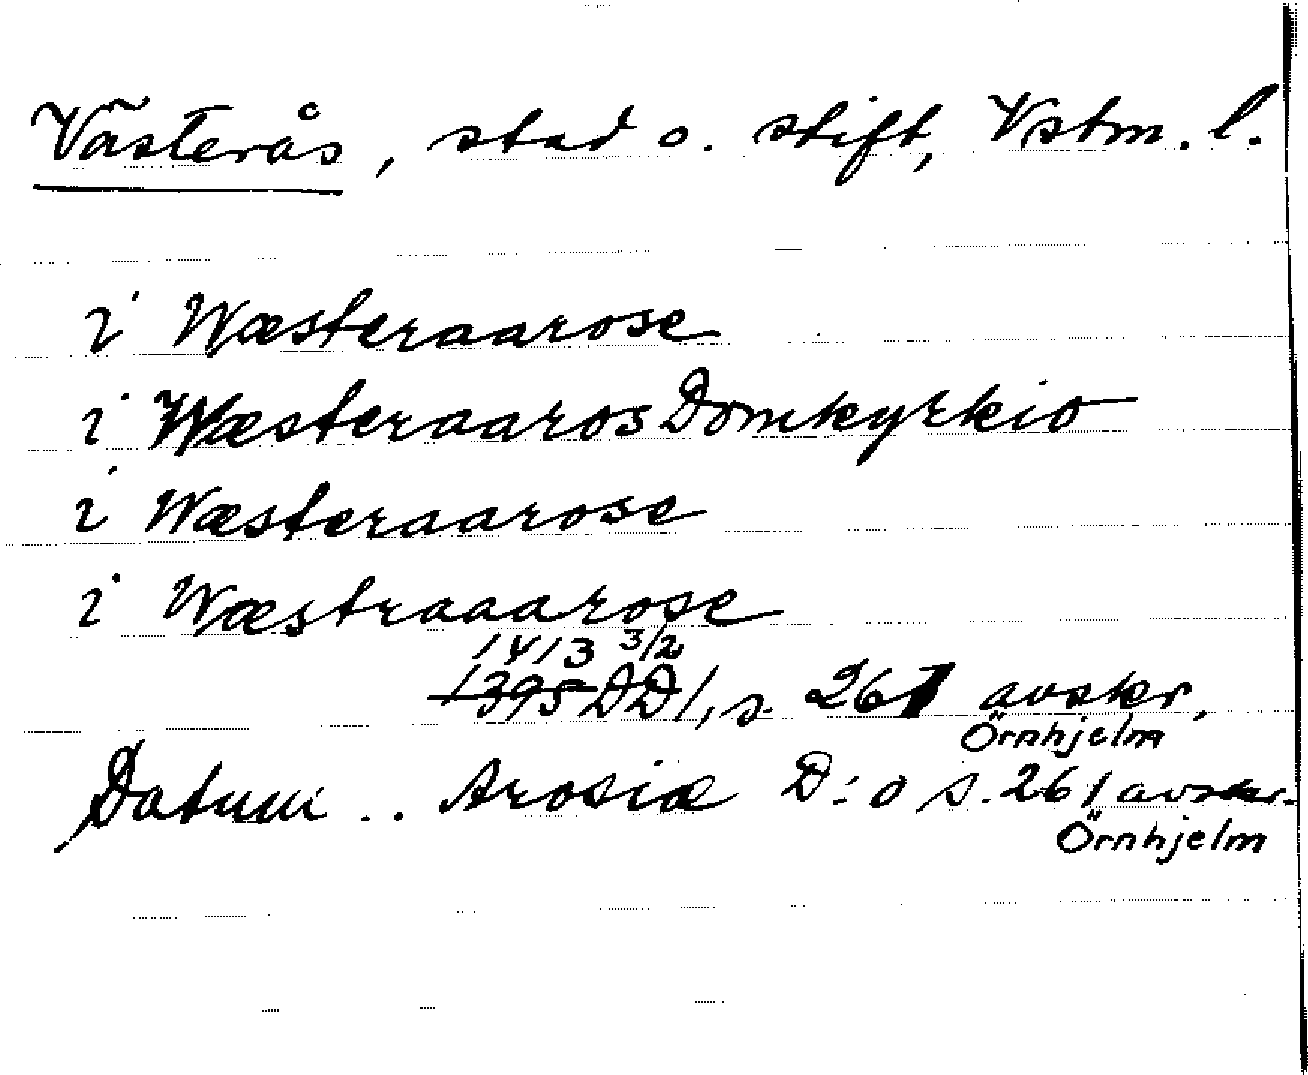 Västerås, stad o. stift, Vstm. l.
i Wæsteraarose
i Wæsteraaros Domkyrkio
i Wæsteraarose
i Wæstraaarose
1413 3/2
1395 DD 1, s. 261 avskr.
Örnhjelm
Datum .. Arosiæ D:o s. 261 avskr.
Örnhjelm